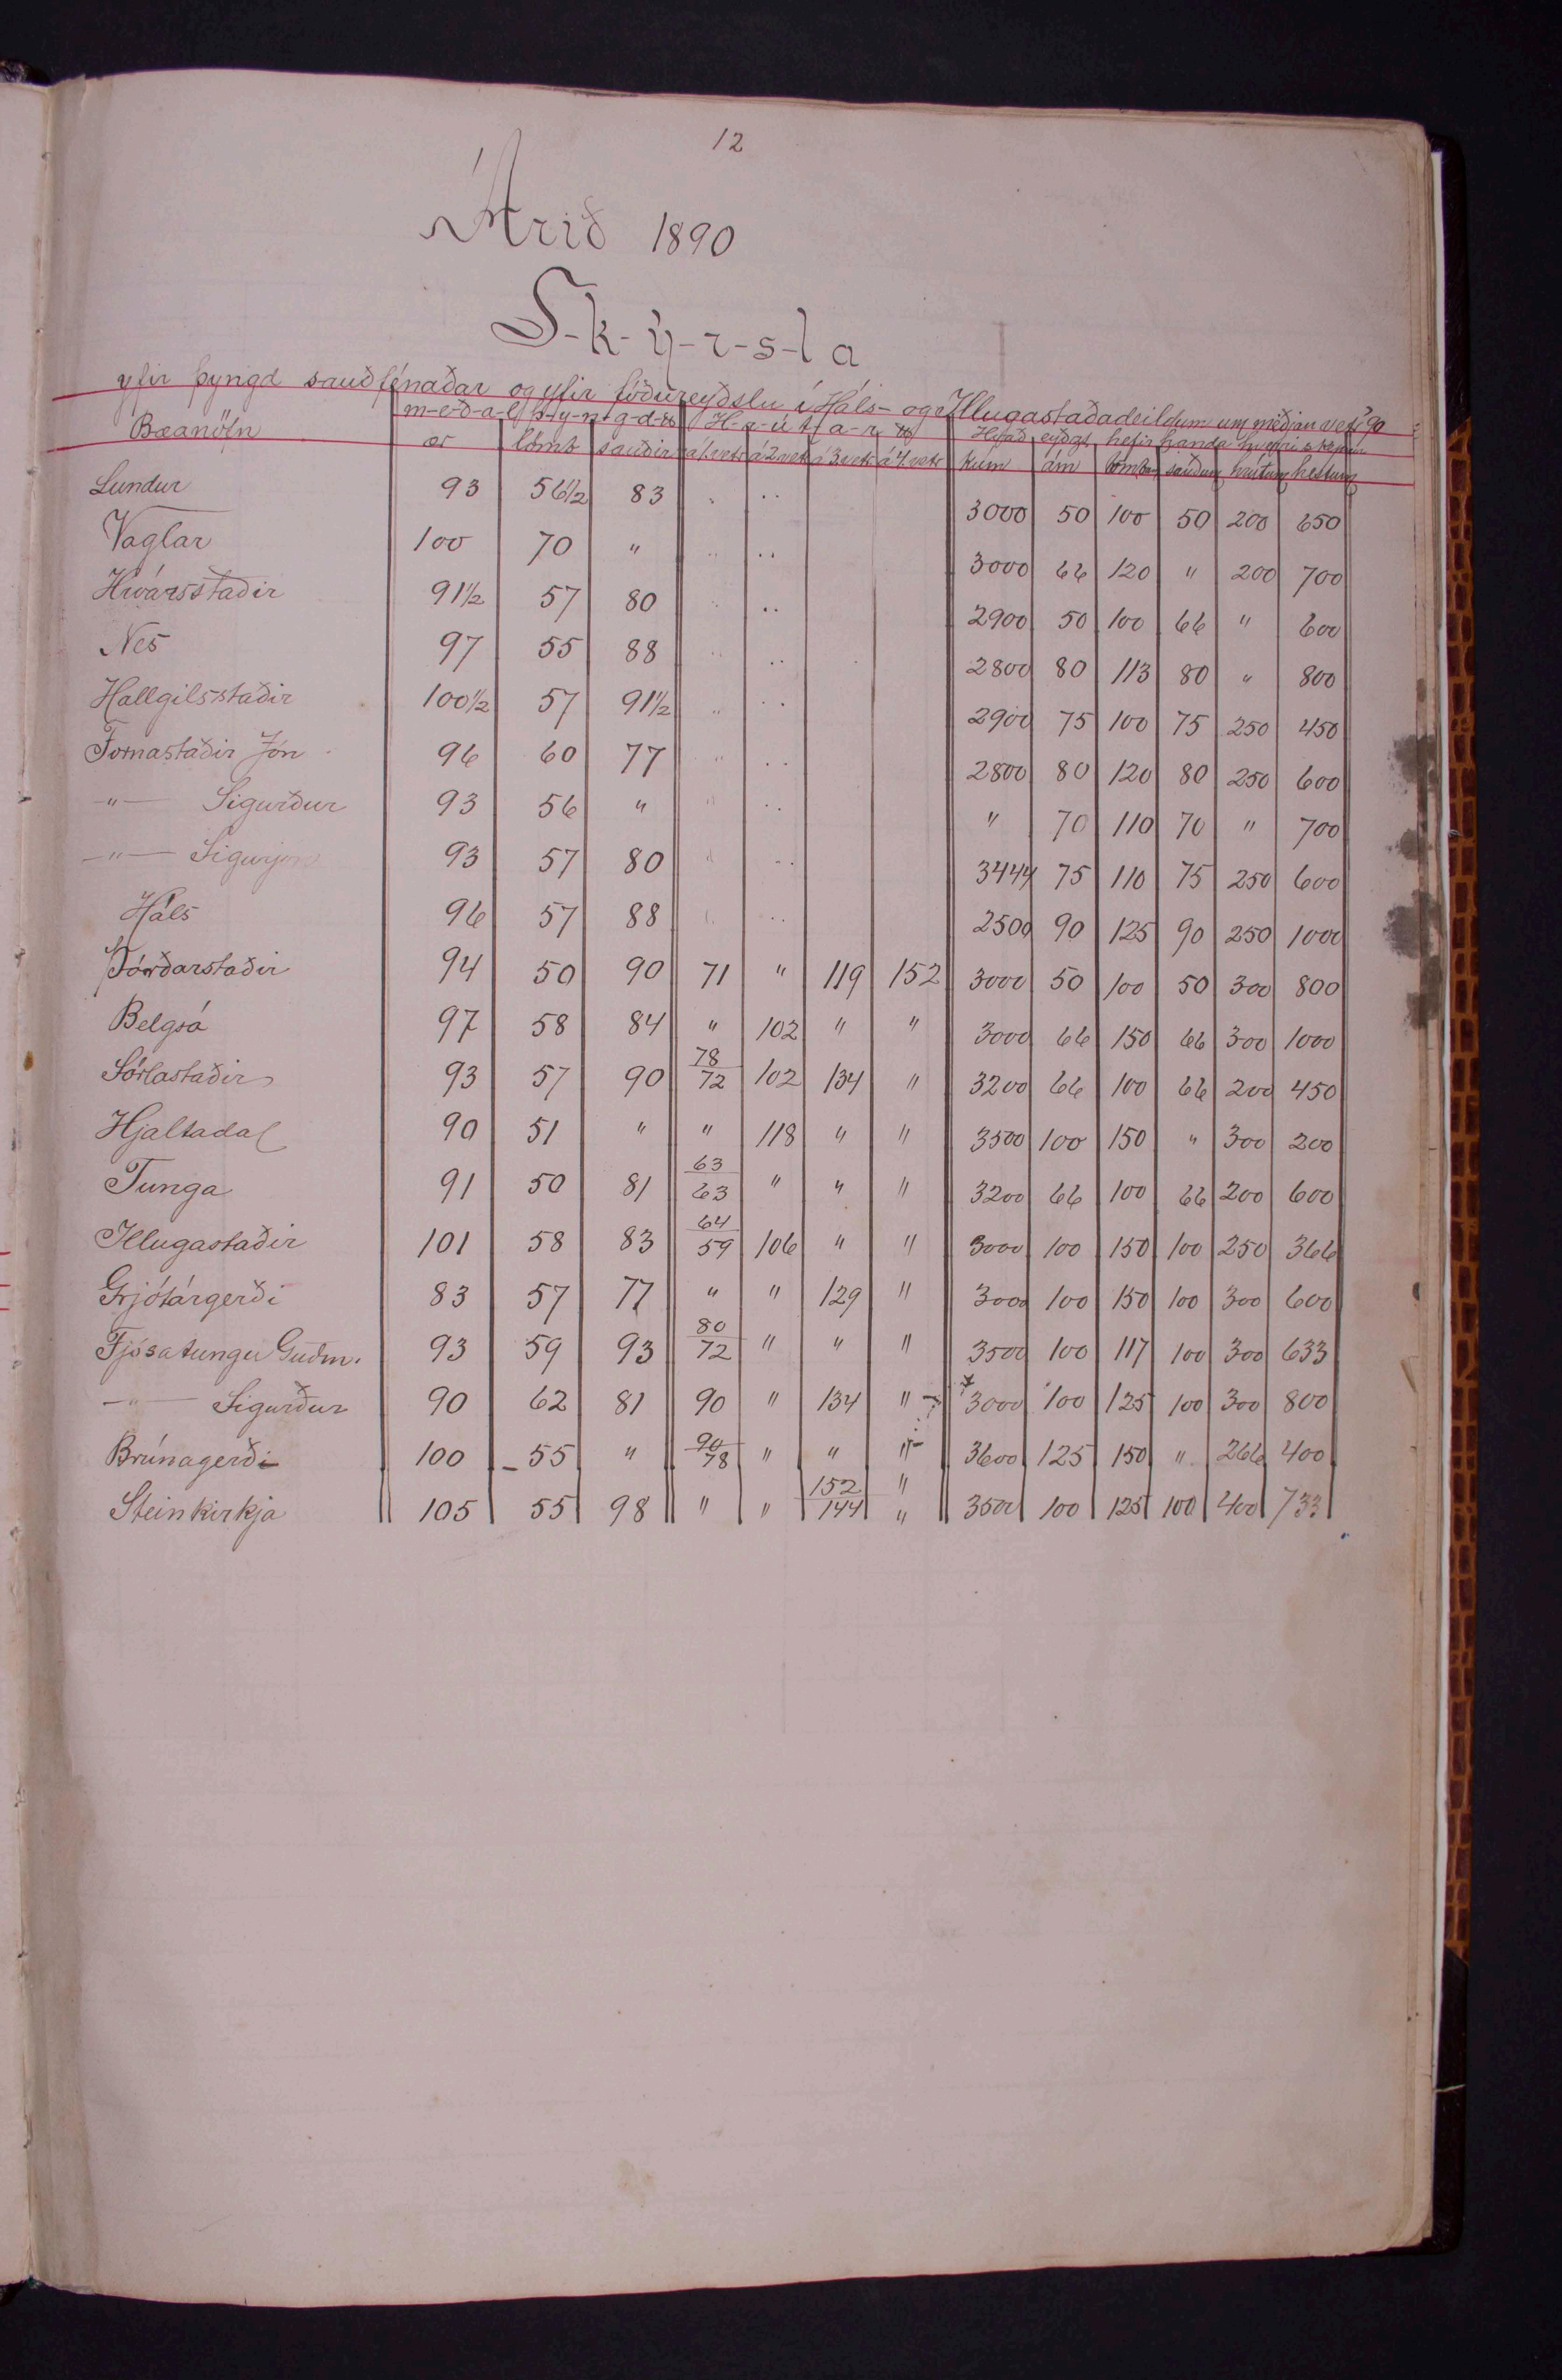 12
Árið 1890
S-k-ý-r-s-l-a
yfir þyngd sauðfénaðar og yfir fóðureyðslu í Háls- og Illugastaðadeildum um miðjan vetr '90
Bæanöfn m-e-ð-a-l þ-y-n-g-d H-r-ú-t-a-r Hvað eyðzt hefir handa hverri skepnu
ær lömb sauðir á 1. vetr á 2 vetr á 3 vetr á 4. vetr kúm ám lömbum sauðum hrútum hestum
Lundur 93 56 1/2 83 " " 3000 50 100 50 200 650
Vaglar 100 70 " " " 3000 66 120 " 200 700
Hróarsstaðir 91 1/2 57 80 " " 2900 50 100 66 " 600
Nes 97 55 88 " " 2800 80 113 80 " 800
Hallgilsstaðir 100 1/2 57 91 1/2 " " 2900 75 100 75 250 450
Fornastaðir Jón 96 60 77 " " 2800 80 120 80 250 600
-"- Sigurður 93 56 " " " " 70 110 70 " 700
-"- Sigurjón 93 57 80 " " 3444 75 110 75 250 600
Háls 96 57 88 " " 2500 90 125 90 250 1000
Þórðarstaðir 94 50 90 71 " 119 152 3000 50 100 50 300 800
Belgsá 97 58 84 " 102 " " 3000 66 150 66 300 1000
Sörlastaðir 93 57 90 78/72 102 134 " 3200 66 100 66 200 450
Hjaltadal 90 51 " " 118 " " 3500 100 150 " 300 200
Tunga 91 50 81 63/63 " " " 3200 66 100 66 200 600
Illugastaðir 101 58 83 64/59 106 " " 3000 100 150 100 250 366
Grjótárgerði 83 57 77 " " 129 " 3000 100 150 100 300 600
Fjósatungu Guðm. 93 59 93 80/72 " " " 3500 100 117 100 300 633
-"- Sigurður 90 62 81 90 " 134 " 3000 100 125 100 300 800
Brúnagerði 100 55 " 90/78 " " " 3600 125 150 " 266 400
Steinkirkja 105 55 98 " " 152/144 " " 3500 100 125 100 400 733